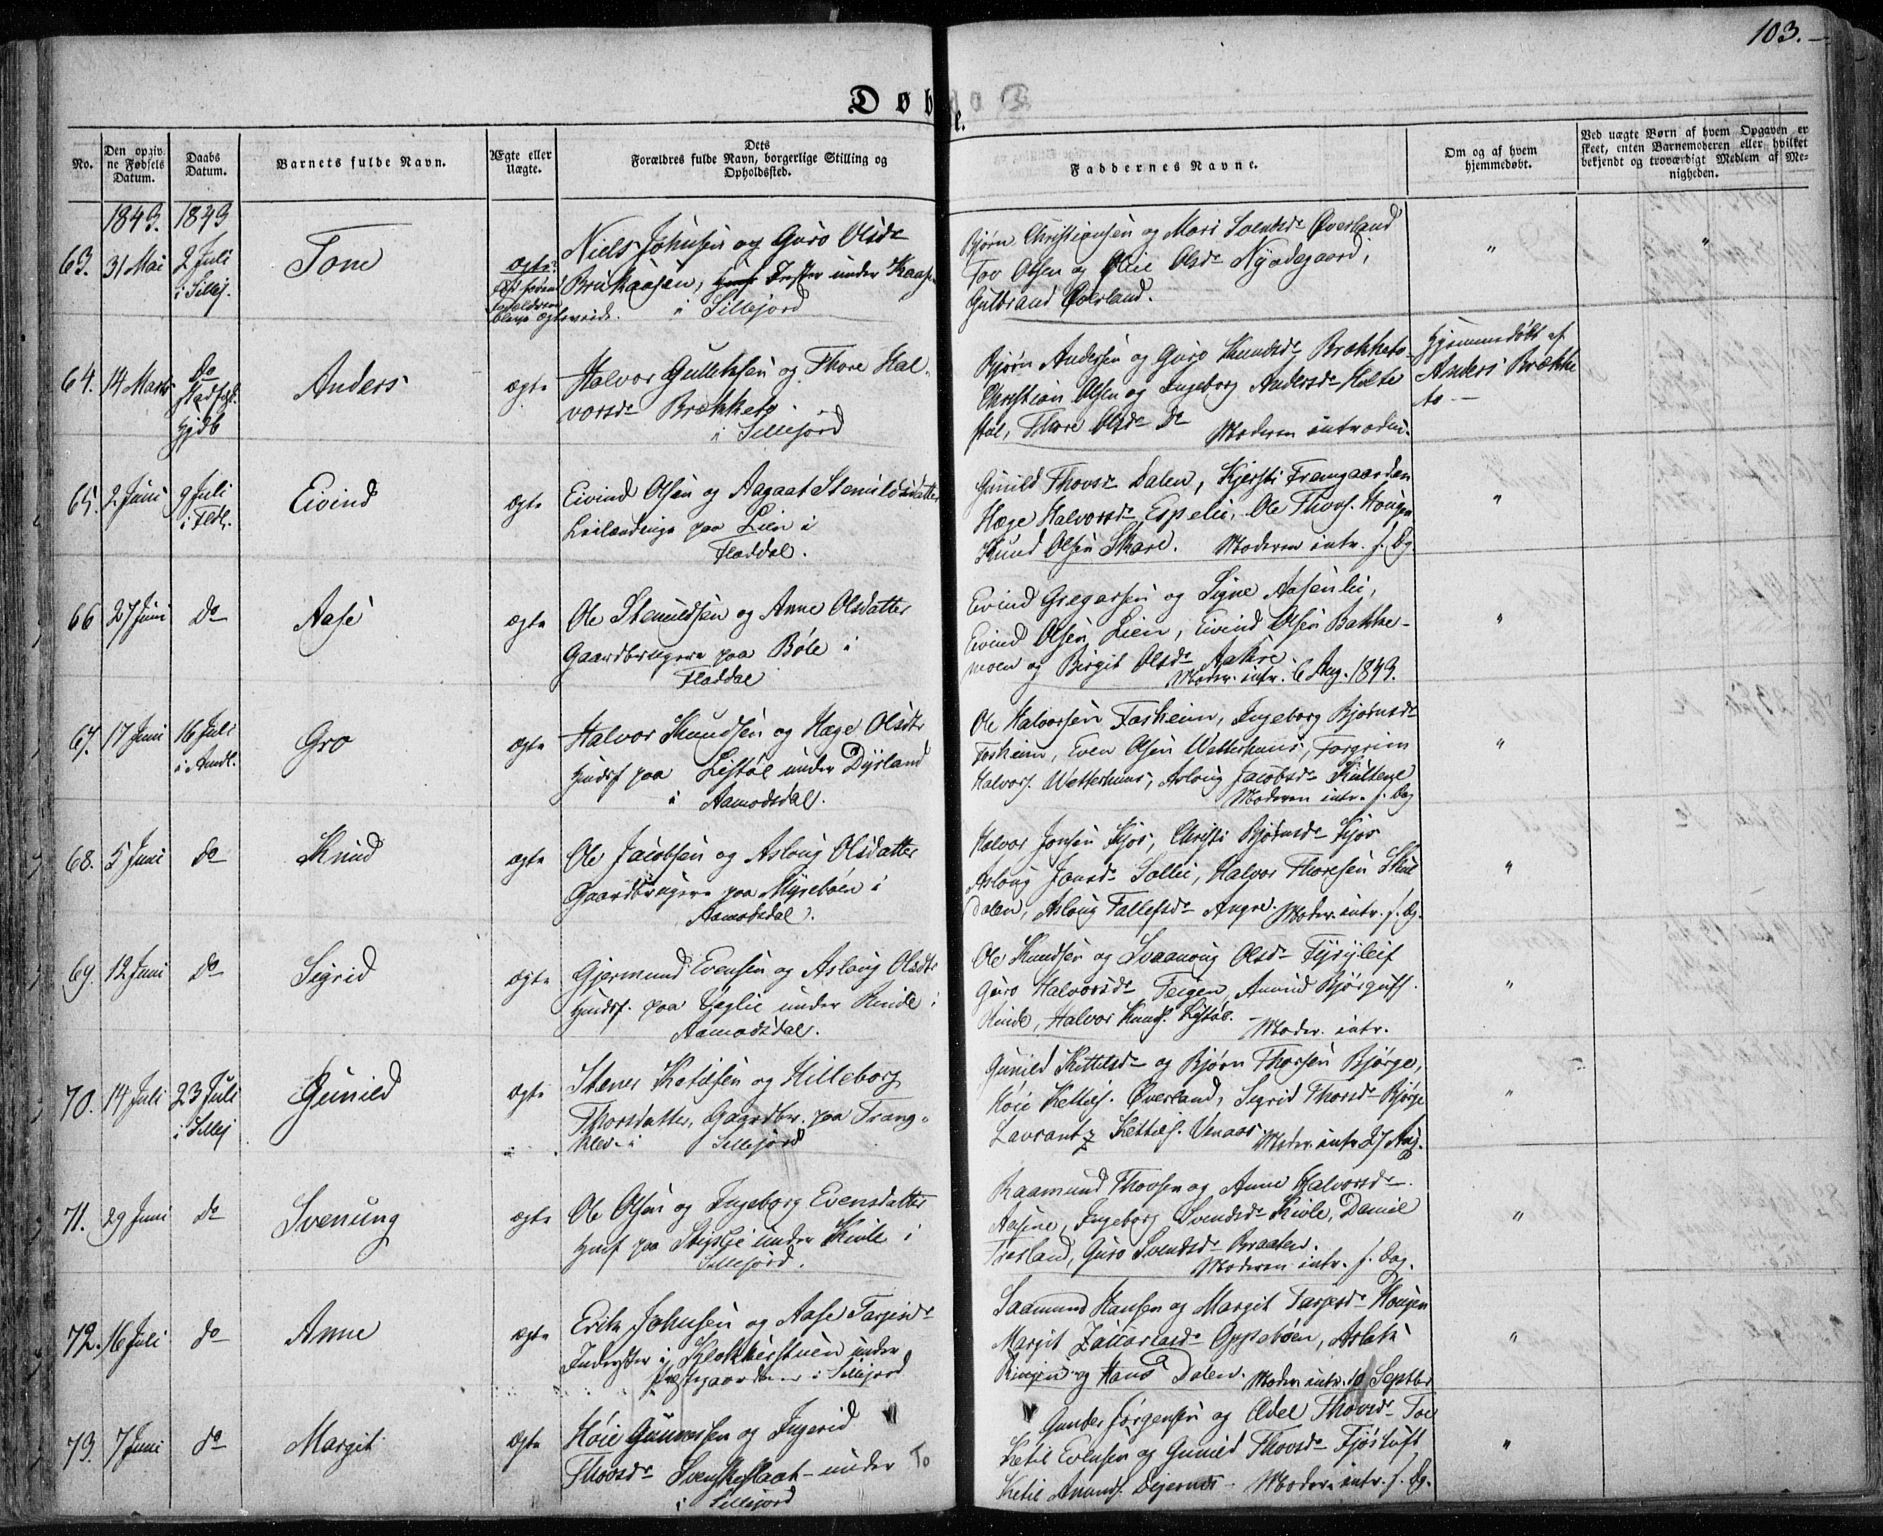 103.
Døbte.
No.
Den opgivne Fødsels Datum.
Daabs Datum.
Barnets fulde Navn.
Ægte eller Uægte.
Dets Forældres fulde Navn, borgerlige Stilling og Opholdsted.
Faddernes Navne.
Om og af hvem hjemmedøbt.
Ved uægte Børn af hvem Opgaven er skeet, enten Barnemoderen eller hvilket bekjendt og troværdigt Medlem af Menigheden.
1849. 1849
63. 31 Mai 2 Juli i Sillej. Tone ægte
Niels Johnsen og Guro Olsdr
under Kaase
i Sillejord
Bjørn Christiansen og Mari Svenksdr Øverland
Tov Olsen og Olsdr Nyødegaard,
Gulbrand Øverland.
64. 14 Marts do Stadfæst. Hjdb Anders ægte
Halvor Gulleksen og Thore Hal-
vorsdr Brækketo
i Sillejord
Bjørn Andersen og Guro Knudsdr Brækketo
Christian Olsen og Ingeborg Andersdr Holte
stul, Thore Olsdr do Moderen introdu.
Hjemmedøbt af
Anders Brække
to —
65. 2 Juni 9 Juli i Fldl. Eivind ægte
Eivind Olsen og Aagaat Stenuldsdatter
Leilændinge paa Lien i
Fladdal.
Gunild Thovsdr Dalen, Kjersti Framgaarden
Hæge Halvorsdr Espelie, Ole Thovs. Hougen
Knud Olsen Skare. Moderen intr. s. Dg
66 27 Juni do Aase ægte
Ole Stenuldsen og Anne Olsdatter
Gaardbrugere paa Bøle i
Fladdal
Eivind Gregarsen og Signe Aasenlie,
Eivind Olsen Lien, Eivind Olsen Bakke-
moen og Birgit Olsdr Aakre.
Moder. intr. 6 Aug. 1849.
67. 17 Juni 16 Juli i Amdl. Gro ægte
Halvor Knudsen og Hæge Olsdtr
Hmdsf paa Listøl under Dyrland
i Aamodsdal.
Ole Halvorsen Fosheim, Ingeborg Bjørnsdr
Fosheim, Even Olsen Wetterhuus, Torgrim
Halvors. Wetterhuus, Asloug Jacobsdr
Moderen intr. s. Dag
68. 5 Juni do Knud ægte
Ole Jacobsen og Asloug Olsdatter
Gaardbrugere paa Myrebøen i
Aamodsdal.
Halvor Jonsen Kjos, Christi Bjørnsdr Kjos
Asloug Jonsdr Sollie, Halvor Thoresen
Dalen, Asloug Tallefsdr Moder. intr. s. Dg.
69. 12 Juni do Sigrid ægte
Gjermund Evensen og Asloug Olsdtr
Hmdsf. paa under Rinde i
Aamodsdal.
Ole Knudsen og Svaanoug Olsdr
Guro Halvorsdr Teigen Anund Bjørgufs.
Rinde, Halvor Knuds. Listøl. Moder. intr.
70. 14 Juli 23 Juli i Sillej Gunild ægte
Stener Ketilsen og Hilleborg
Thorsdatter, Gaardbr. paa Trang-
klev i Sillejord
Gunild Kittilsdr og Bjørn Thorsen Bjørge,
Høie Kettils. Øverland, Sigrid Thorsdr Bjørge
Lavrantz Kettils. Venaas Moder. intr 27 Aug.
71. 29 Juni do Svenung ægte
Ole Olsen og Ingeborg Evensdatter
Hmsf paa under Kivle i
Sillejord.
Raamund Thovsen og Anne Halvorsdr
Aasene, Ingeborg Svendsdr Kivle, Daniel
Guro Svendsdr Braaten.
Moderen intr. s. Dag.
72. 16 Juli do Anne ægte
Erik Johnsen og Aase Tarjeisdr
Inderster i Klokkerstuen under
Præstgaarden i Sillejord
Saamund Hansen og Margit Tarjeisdr Hougen
Margit Oppebøen, Aslak
og Hans Dalen. Moder. intr. 10 Septbr
73. 7 Juni do Margit ægte
Høie Gunnersen og Ingerid
Thovsdr under
i Sillejord
Gunder Jørgensen og Edel Thovsdr
Ketil Evensen og Gunild Thovsdr Fjøstuft
Ketil Anunds. Moder. intr. s. Dg.